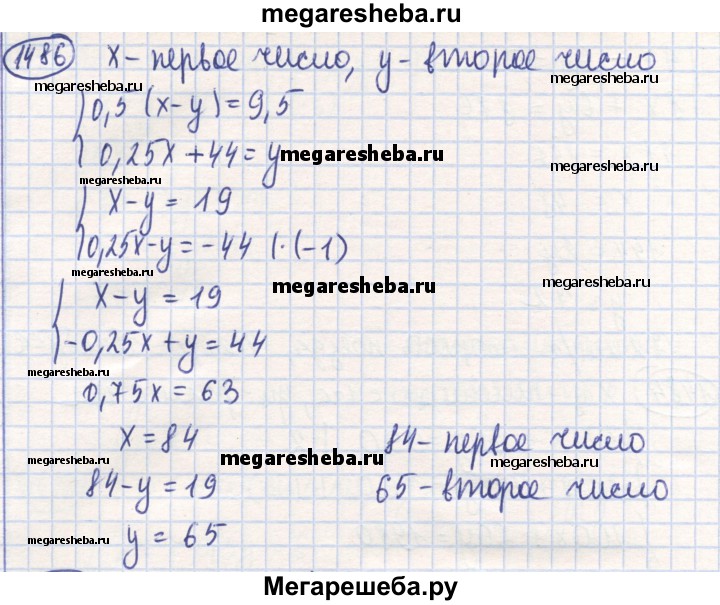 megaresheba.ru
1486 x – первое число, y – второе число
megaresheba.ru megaresheba.ru
0,5 (x-y) = 9,5
0,25x + 44 = y
megaresheba.ru
megaresheba.ru
x-y = 19
0,25x-y = -44 |·(-1)
megaresheba.ru
megaresheba.ru
megaresheba.ru
x-y = 19
-0,25x+y = 44
megaresheba.ru
0,75x = 63
x = 84 84 – первое число
megaresheba.ru megaresheba.ru megaresheba.ru
84-y = 19 65 – второе число
megaresheba.ru
y = 65
Мегарешеба.ру